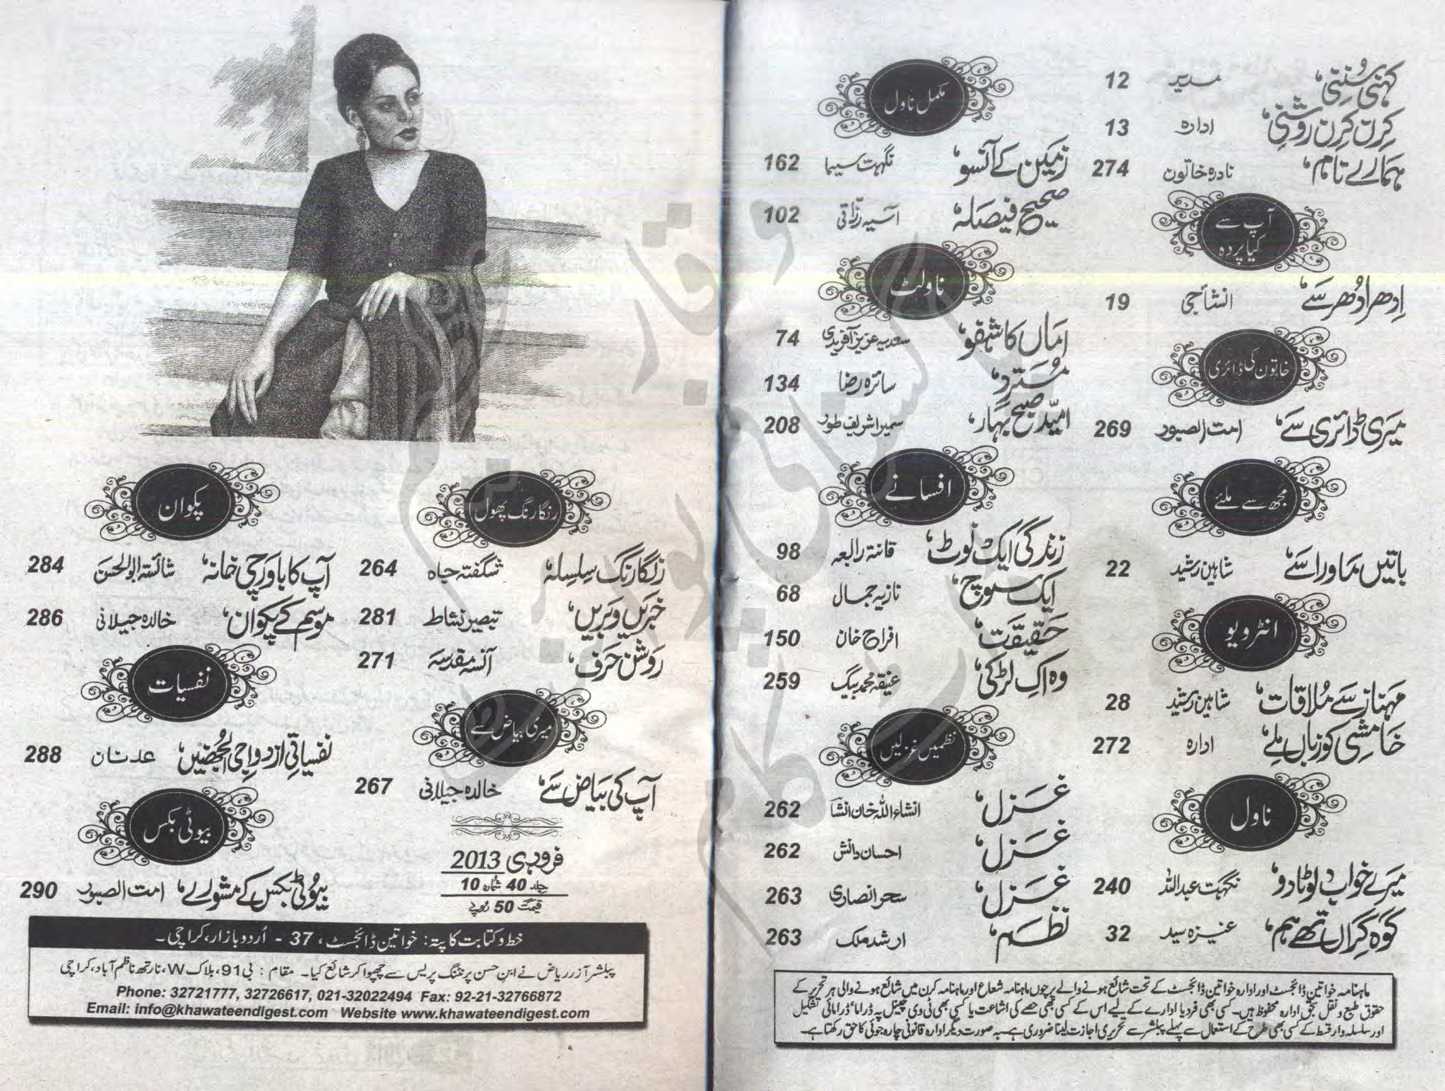 کہنی سُننی، مدیر 12
کرن کرن روشنی، ادارہ 13
ہمارے نام، نادرہ خاتون 274
آپ سے
کیا پردہ
اِدھر اُدھر سے، انشا جی 19
خاتون کی ڈائری
میری ڈائری سے، امت الصبور 269
مجھ سے ملئے
باتیں ماورا سے، شاہین رشید 22
انٹرویو
مہناز سے مُلاقات، شاہین رشید 28
خامشی کو زباں ملے، ادارہ 272
ناول
میرے خواب لوٹا دو، نگہت عبداللہ 240
کوہ گراں تھے ہم، عنیزہ سید 32
مکمل ناول
زمین کے آنسو، نگہت سیما 162
صحیح فیصلہ، آسیہ رزاقی 102
ناولٹ
اماں کا شہفو، سعدیہ عزیز آفریدی 74
مُسترد، سائرہ رضا 134
امیدِ صبح بہار، سمیرا شریف طور 208
افسانے
زندگی ایک نوٹ، قانتہ رابعہ 98
ایک سوچ، نازیہ جمال 68
حقیقت، افراح خان 150
وہ اک لڑکی، عنیقہ محمد بیگ 259
نظمیں غزلیں
غزل، انشاء اللہ خان انشا 262
غزل، احسان دانش 262
غزل، سحر انصاری 263
نظم، ارشد ملک 263
ماہنامہ خواتین ڈائجسٹ اور ادارہ خواتین ڈائجسٹ کے تحت شائع ہونے والے پرچوں ماہنامہ شعاع اور ماہنامہ کرن میں شائع ہونے والی ہر تحریر کے
حقوق طبع و نقل بحق ادارہ محفوظ ہیں۔ کسی بھی فرد یا ادارے کے لیے اس کے کسی بھی حصے کی اشاعت یا کسی بھی ٹی وی چینل پہ ڈراما، ڈرامائی تشکیل
اور سلسلہ وار قسط کے کسی بھی طرح کے استعمال سے پہلے پبلشر سے تحریری اجازت لینا ضروری ہے۔ بہ صورت دیگر ادارہ قانونی چارہ جوئی کا حق رکھتا ہے۔
رنگا رنگ پھول
رنگا رنگ سلسلہ، شگفتہ جاہ 264
خبریں وبریں، تبصیر نشاط 281
روشن حرف، آنسہ مقدسہ 271
میری بیاض سے
آپ کی بیاض سے، خالدہ جیلانی 267
فروری 2013
جلد 40 شمارہ 10
قیمت 50 روپے
پکوان
آپ کا باورچی خانہ، شائستہ ابوالحسن 284
موسم کے پکوان، خالدہ جیلانی 286
نفسیات
نفسیاتی ازدواجی الجھنیں، عدنان 288
بیوٹی بکس
بیوٹی بکس کے مشورے، امت الصبور 290
خط و کتابت کا پتہ: خواتین ڈائجسٹ، 37 - اُردو بازار، کراچی۔
پبلشر آزر ریاض نے ابن حسن پرنٹنگ پریس سے چھپوا کر شائع کیا۔ مقام : بی 91، بلاک W، نارتھ ناظم آباد، کراچی
Phone: 32721777, 32726617, 021-32022494 Fax: 92-21-32766872
Email: info@khawateendigest.com Website www.khawateendigest.com